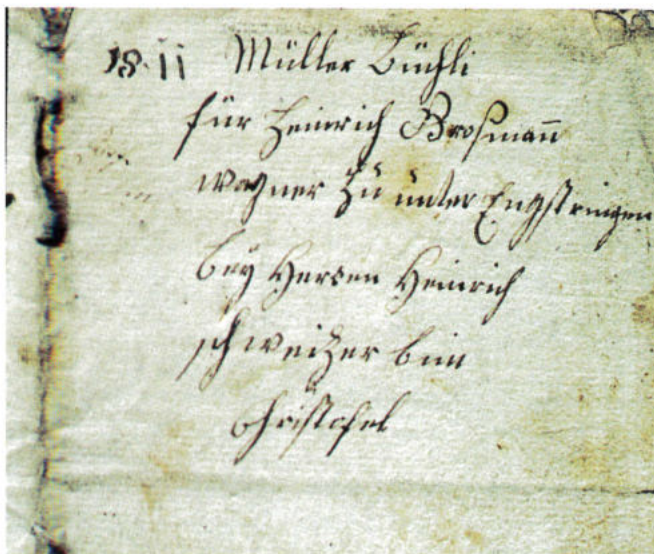 18·11 Müller Büchli
für Heinrich Großmann
wagner zu unter Engstringen
bey Herren Heinrich
schweizer bim
Christofel